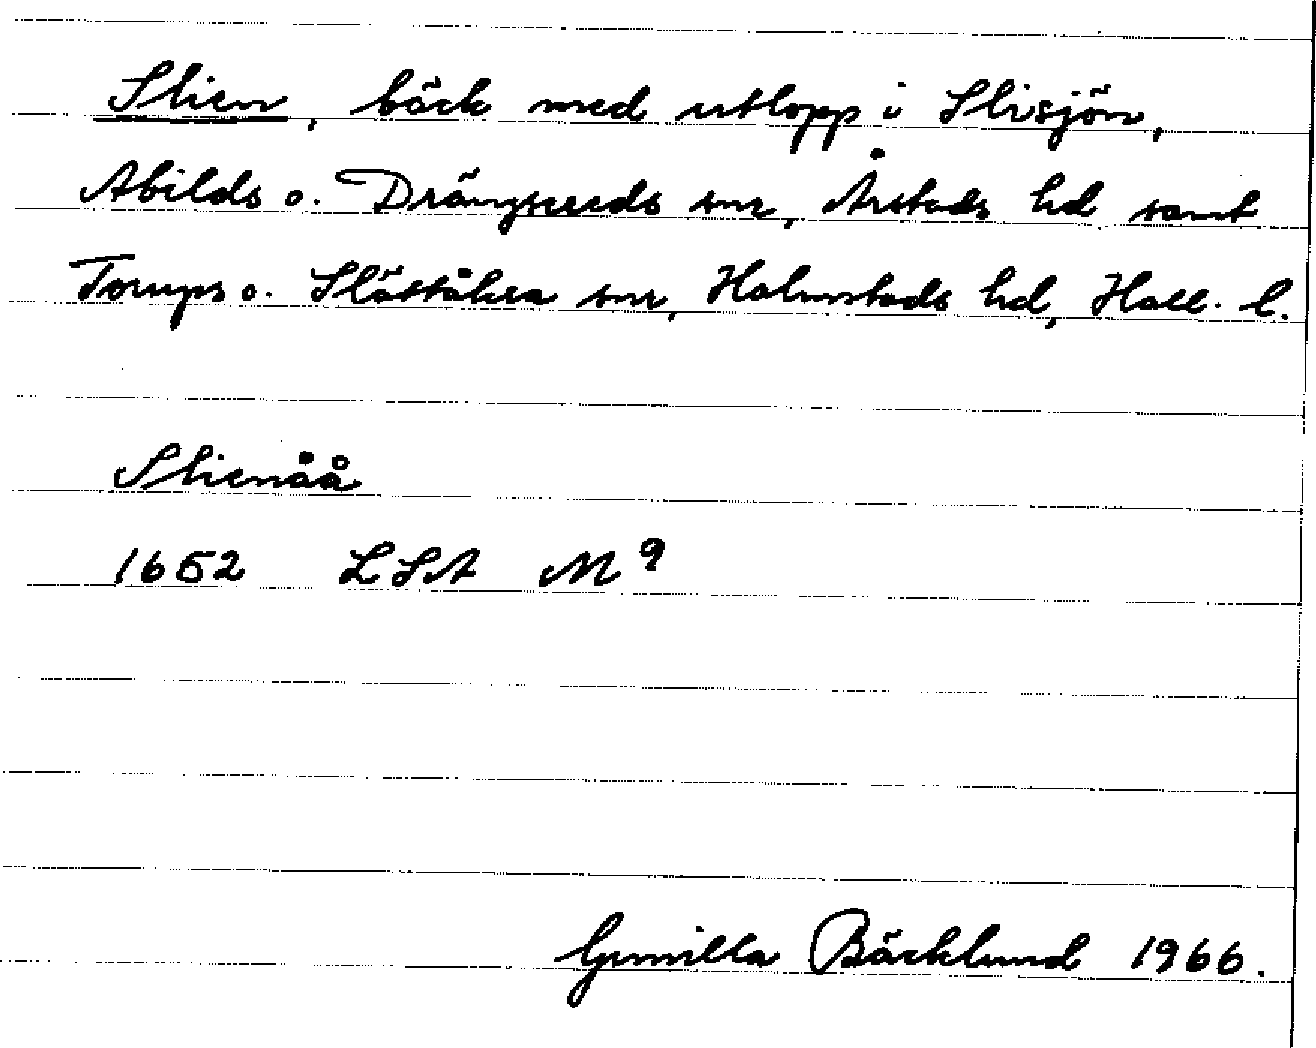 Slien, bäck med utlopp i Slisjön,
Abilds o. Drängsereds snr, Årstads hd samt
Torups o. Slättåkra snr, Halmstads hd, Hall. l.
Slienåå
1652 LSA M 9
Gunilla Bäcklund 1966.